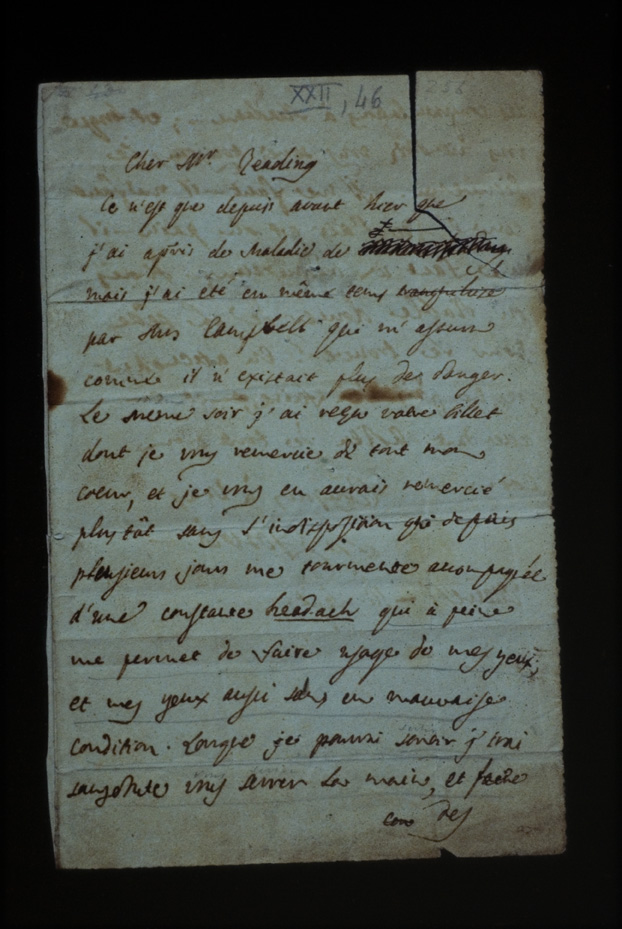 XXII, 46
256
Cher Mr Reading
Ce n'est que depuis avant hier que
j'ai apris de Maladie de
mais j'ai eté en même tems
par Mrs Campbell qui m'assura
comme il n'existait plus de danger.
Le même soir j'ai reçu votre billet
dont je vous remercie de tout mon
coeur, et je vous en aurais remercié
plustôt sans l'indisposition qui depuis
plusieurs jours me tourmente accompagnée
d'une constante headach qui à peine
me permet de faire usage de mes yeux;
et mes yeux aussi sons en mauvaise
condition. Lorsque je pourrai sortir j'irai
vous serrer la main, et faire
des